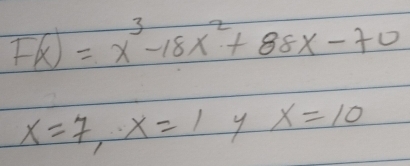 F(x) = x³-18x²+ 88x-70
x=7, x=1 y x=10